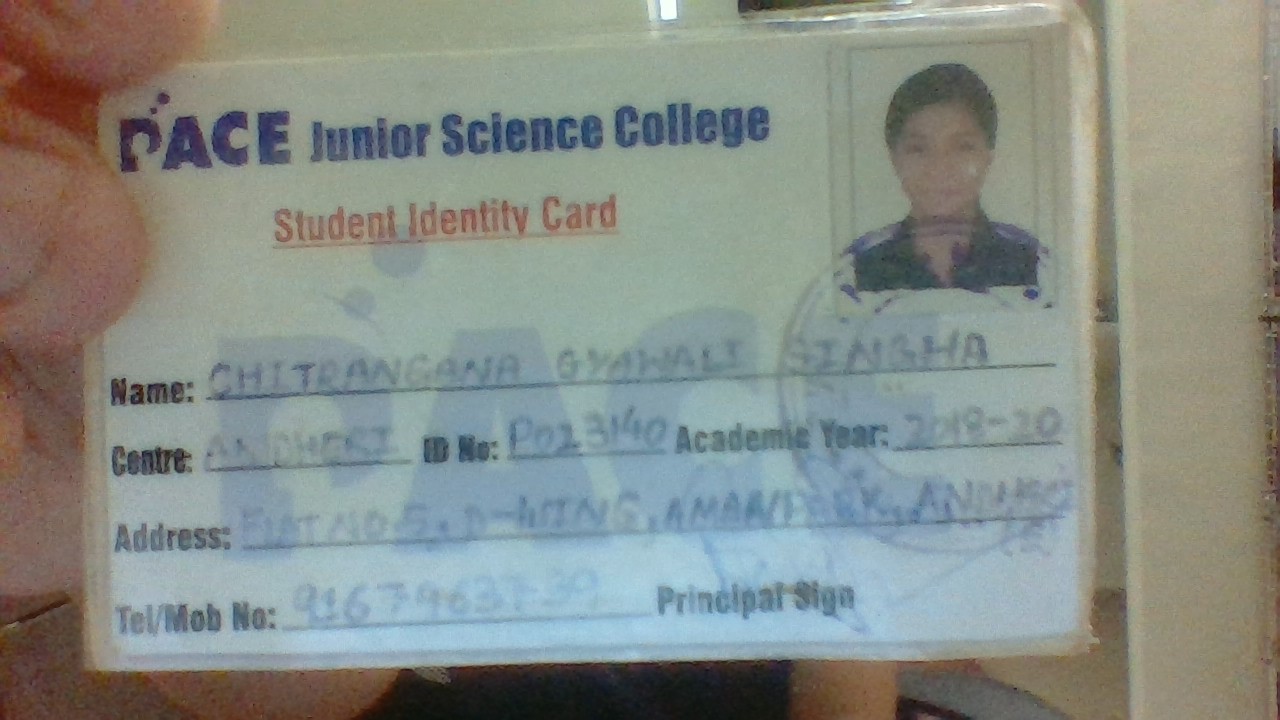 PACE Junior Science College
Student Identity Card
Name: CHITRANGANA GYAWALI SINGHA
Centre: ANDHERI ID No: P023140 Academic Year: 2018-20
Address: FLAT NO 5, D-WING, AMAN PARK, ANDHERI
(E)
Tel/Mob No: Principal Sign